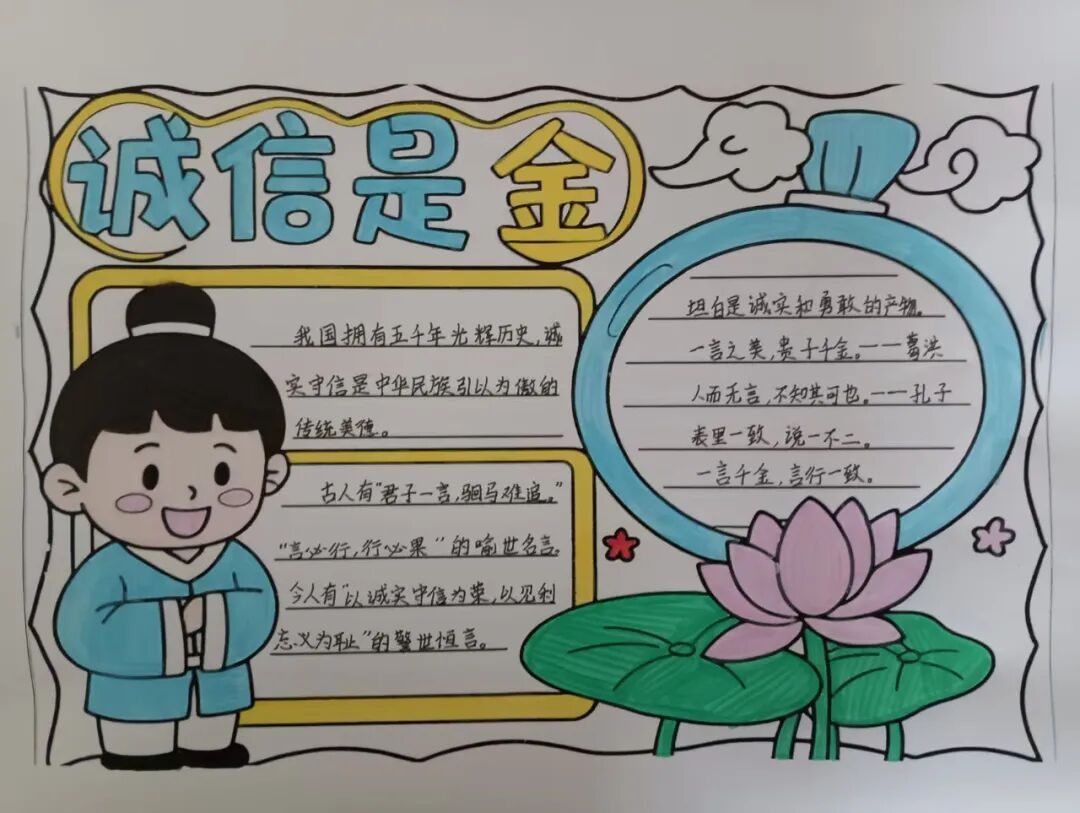 诚信是金
我国拥有五千年光辉历史，诚
实守信是中华民族引以为傲的
传统美德。
古人有“君子一言，驷马难追。”
“言必行，行必果”的喻世名言。
今人有“以诚实守信为荣，以见利
忘义为耻”的警世恒言。
坦白是诚实和勇敢的产物。
一言之美，贵于千金。——葛洪
人而无言，不知其可也。——孔子
表里一致，说一不二。
一言千金，言行一致。